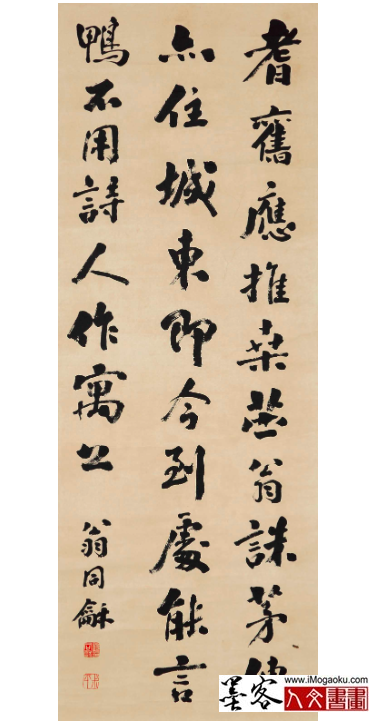 耆舊應推桑苧翁誅茅
亦住城東即今到處能言
鴨不用詩人作寓公
翁同龢
www.iMogaoku.com
墨客
人文書畫